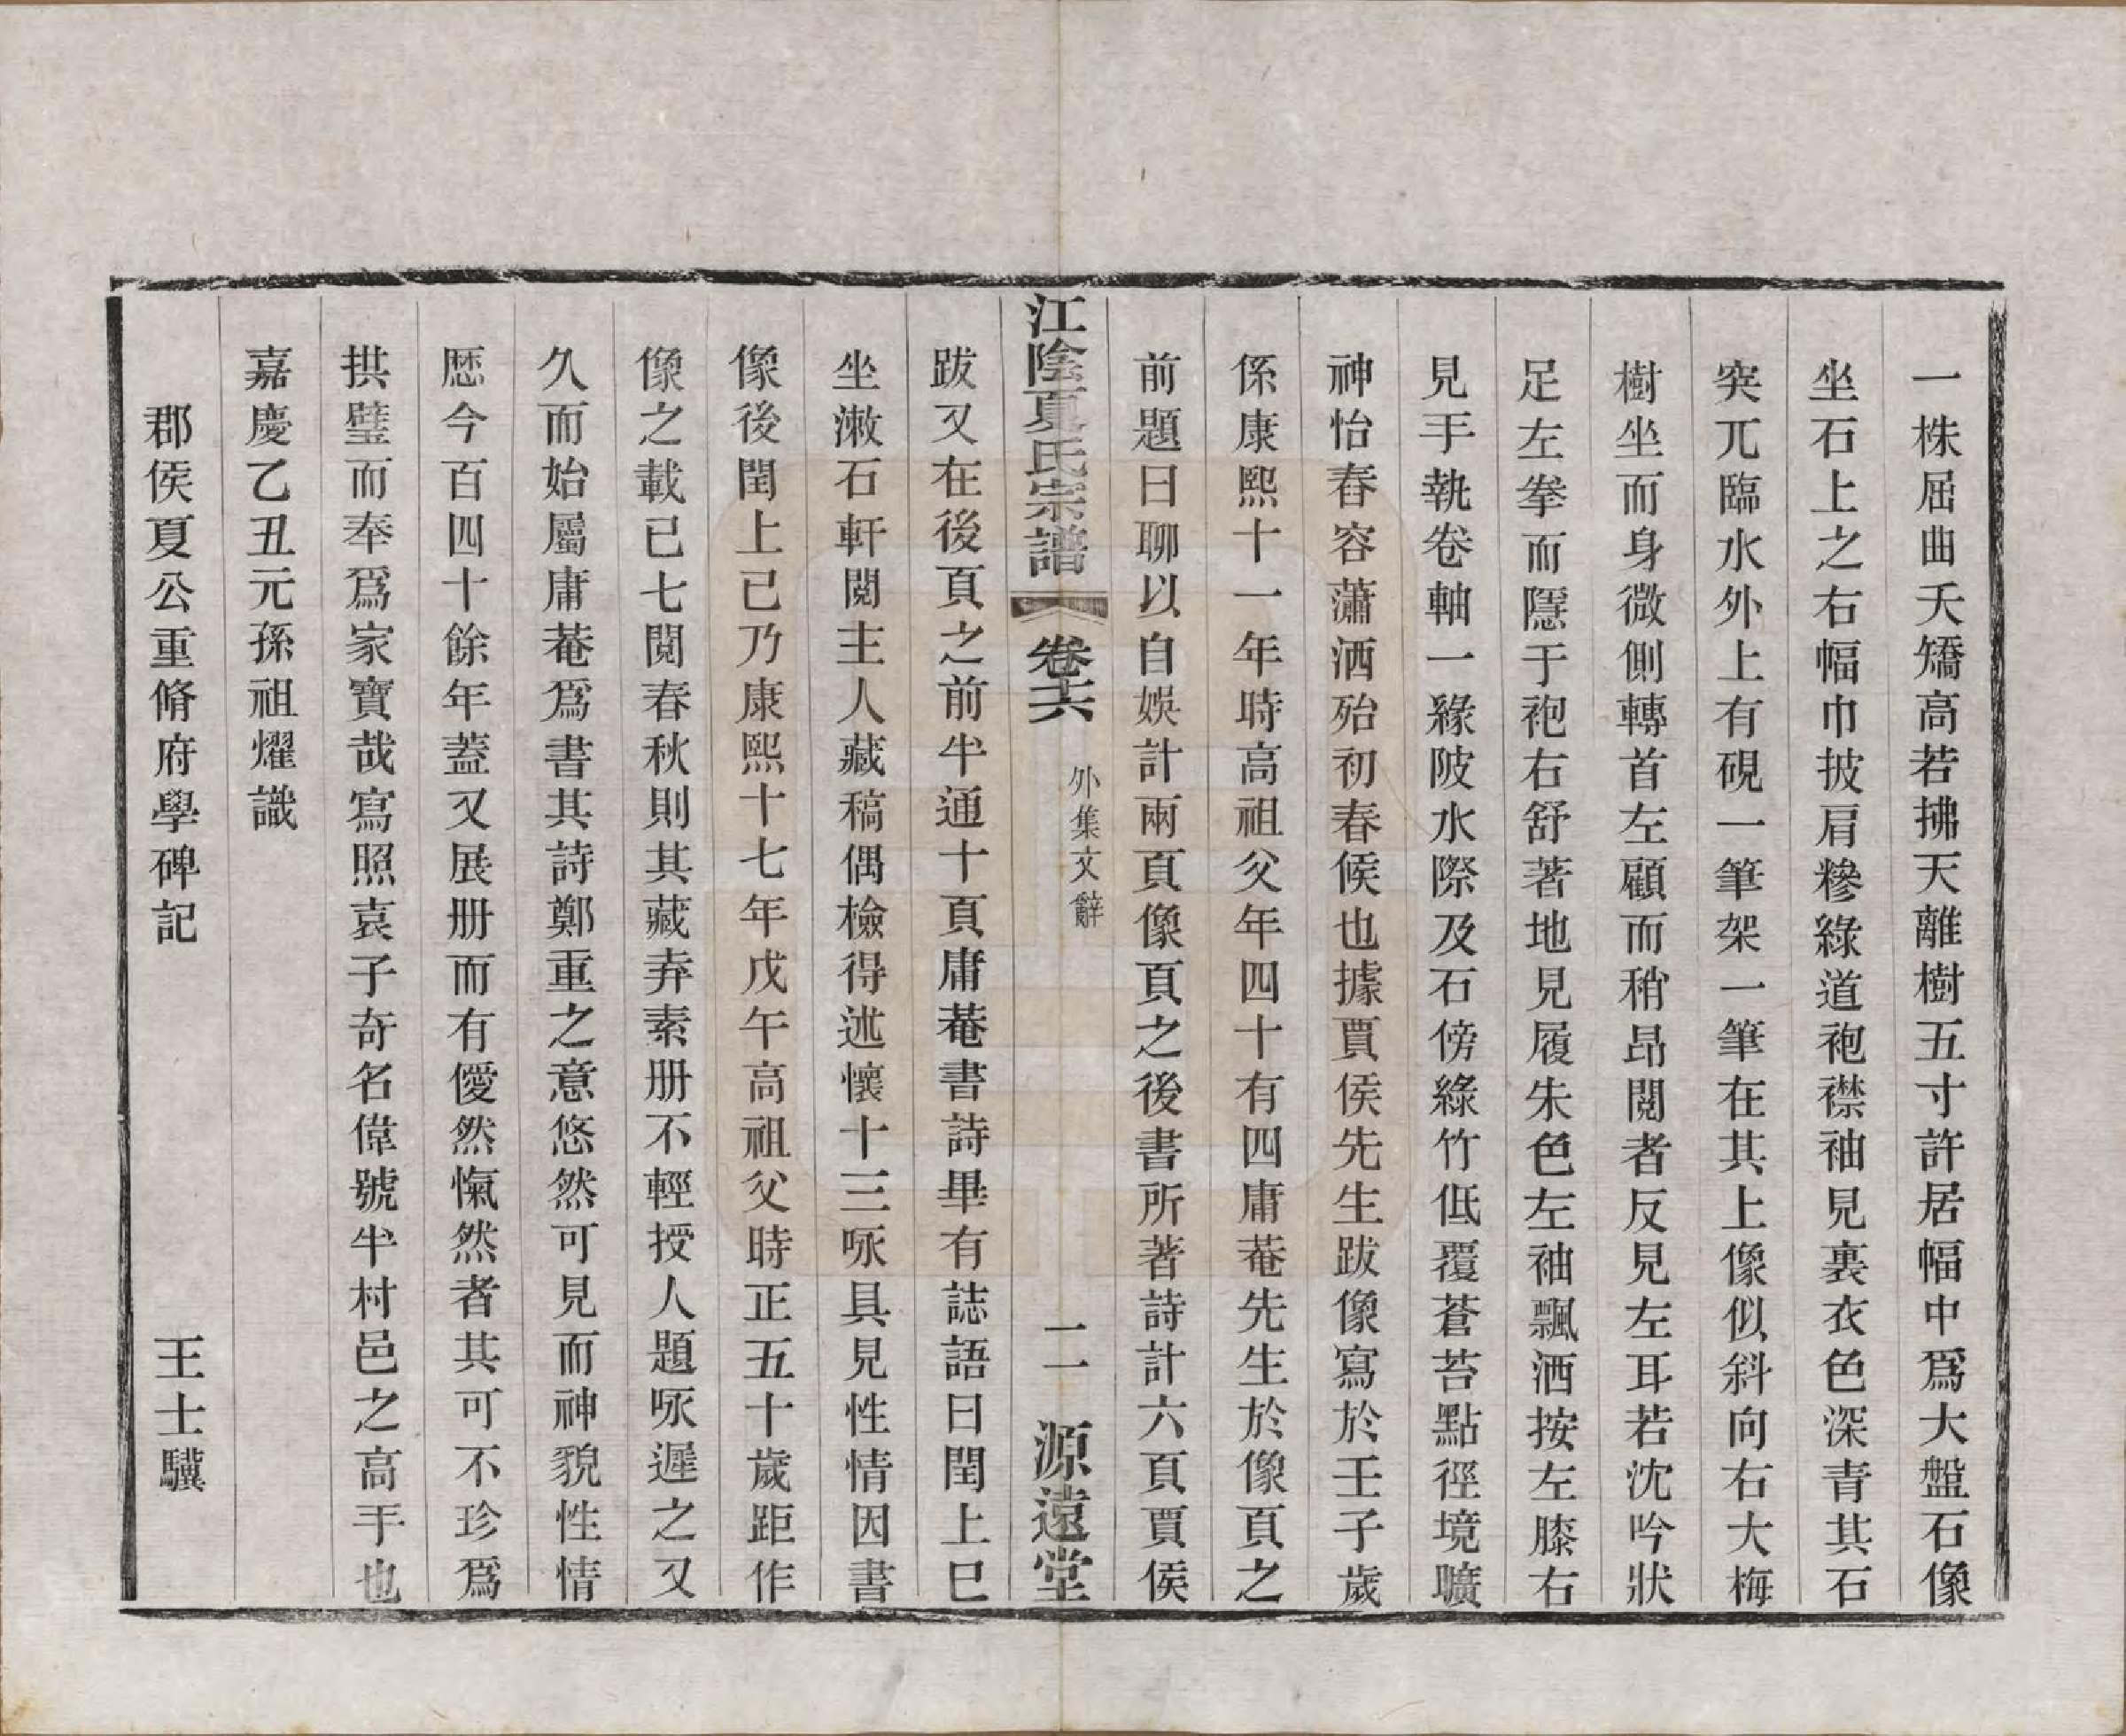 一株屈曲夭矯高若拂天離樹五寸許居幅中爲大盤石像
坐石上之右幅巾披肩糝綠道袍襟袖見裏衣色深青其石
突兀臨水外上有硯一筆架一筆在其上像似斜向右大梅
樹坐而身微側轉首左顧而稍昂閱者反見左耳若沈吟狀
足左拳而隱于袍右舒著地見履朱色左袖飄洒按左膝右
見手執卷軸一緣陂水際及石傍綠竹低覆蒼苔點徑境曠
神怡春容瀟洒殆初春候也據賈侯先生跋像寫於壬子歲
係康熙十一年時高祖父年四十有四庸菴先生於像頁之
前題曰聊以自娛計兩頁像頁之後書所著詩計六頁賈侯
江陰夏氏宗譜 卷十六 外集文辭 二 源遠堂
跋又在後頁之前半通十頁庸菴書詩畢有誌語曰閏上巳
坐漱石軒閱主人藏稿偶檢得述懷十三咏具見性情因書
像後閏上已乃康熙十七年戊午高祖父時正五十歲距作
像之載已七閱春秋則其藏弆素册不輕授人題咏遲之又
久而始屬庸菴爲書其詩鄭重之意悠然可見而神貌性情
歷今百四十餘年蓋又展册而有僾然愾然者其可不珍爲
拱璧而奉爲家寶哉寫照袁子奇名偉號半村邑之高手也
嘉慶乙丑元孫祖燿識
郡侯夏公重脩府學碑記 王士驥